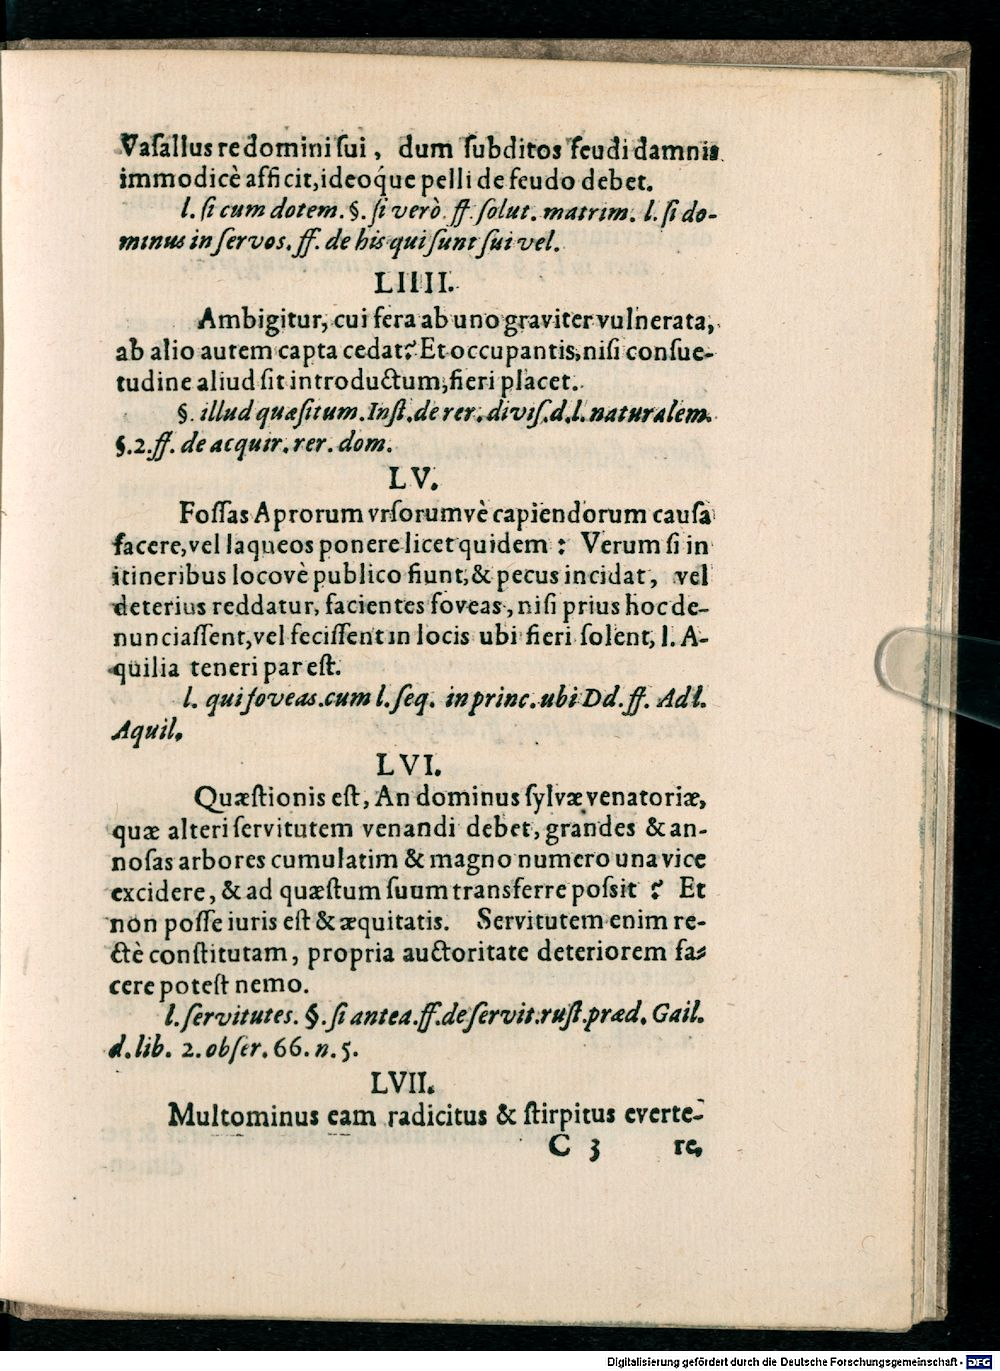 Vaſallus re domini ſui, dum ſubditos feudi damnis
immodicè afficit, ideoq́ue pelli de feudo debet.
l. ſi cum dotem. §. ſi verò. ff. ſolut. matrim. l. ſi do-
minus in ſervos. ff. de his qui ſunt ſui vel.
LIIII.
Ambigitur, cui fera ab uno graviter vulnerata,
ab alio autem capta cedat? Et occupantis, niſi conſue-
tudine aliud ſit introductum, fieri placet.
§. illud quæſitum. Inſt. de rer. diviſ. d. l. naturalem.
§. 2. ff. de acquir. rer. dom.
LV.
Foſſas Aprorum vrſorumvè capiendorum cauſa
facere, vel laqueos ponere licet quidem: Verum ſi in
itineribus locovè publico fiunt, & pecus incidat, vel
deterius reddatur, facientes foveas, niſi prius hoc de-
nunciaſſent, vel feciſſent in locis ubi fieri ſolent, l. A-
quilia teneri par eſt.
l. qui foveas. cum l. ſeq. in princ. ubi Dd. ff. Ad l.
Aquil.
LVI.
Quæſtionis eſt, An dominus ſylvæ venatoriæ,
quæ alteri ſervitutem venandi debet, grandes & an-
noſas arbores cumulatim & magno numero una vice
excidere, & ad quæſtum ſuum transferre poſsit? Et
non poſſe iuris eſt & æquitatis. Servitutem enim re-
ctè conſtitutam, propria auctoritate deteriorem fa-
cere poteſt nemo.
l. ſervitutes. §. ſi antea. ff. de ſervit. ruſt. præd. Gail.
d. lib. 2. obſer. 66. n. 5.
LVII.
Multominus eam radicitus & ſtirpitus everte-
C 3 re,
Digitalisierung gefördert durch die Deutsche Forschungsgemeinschaft - DFG